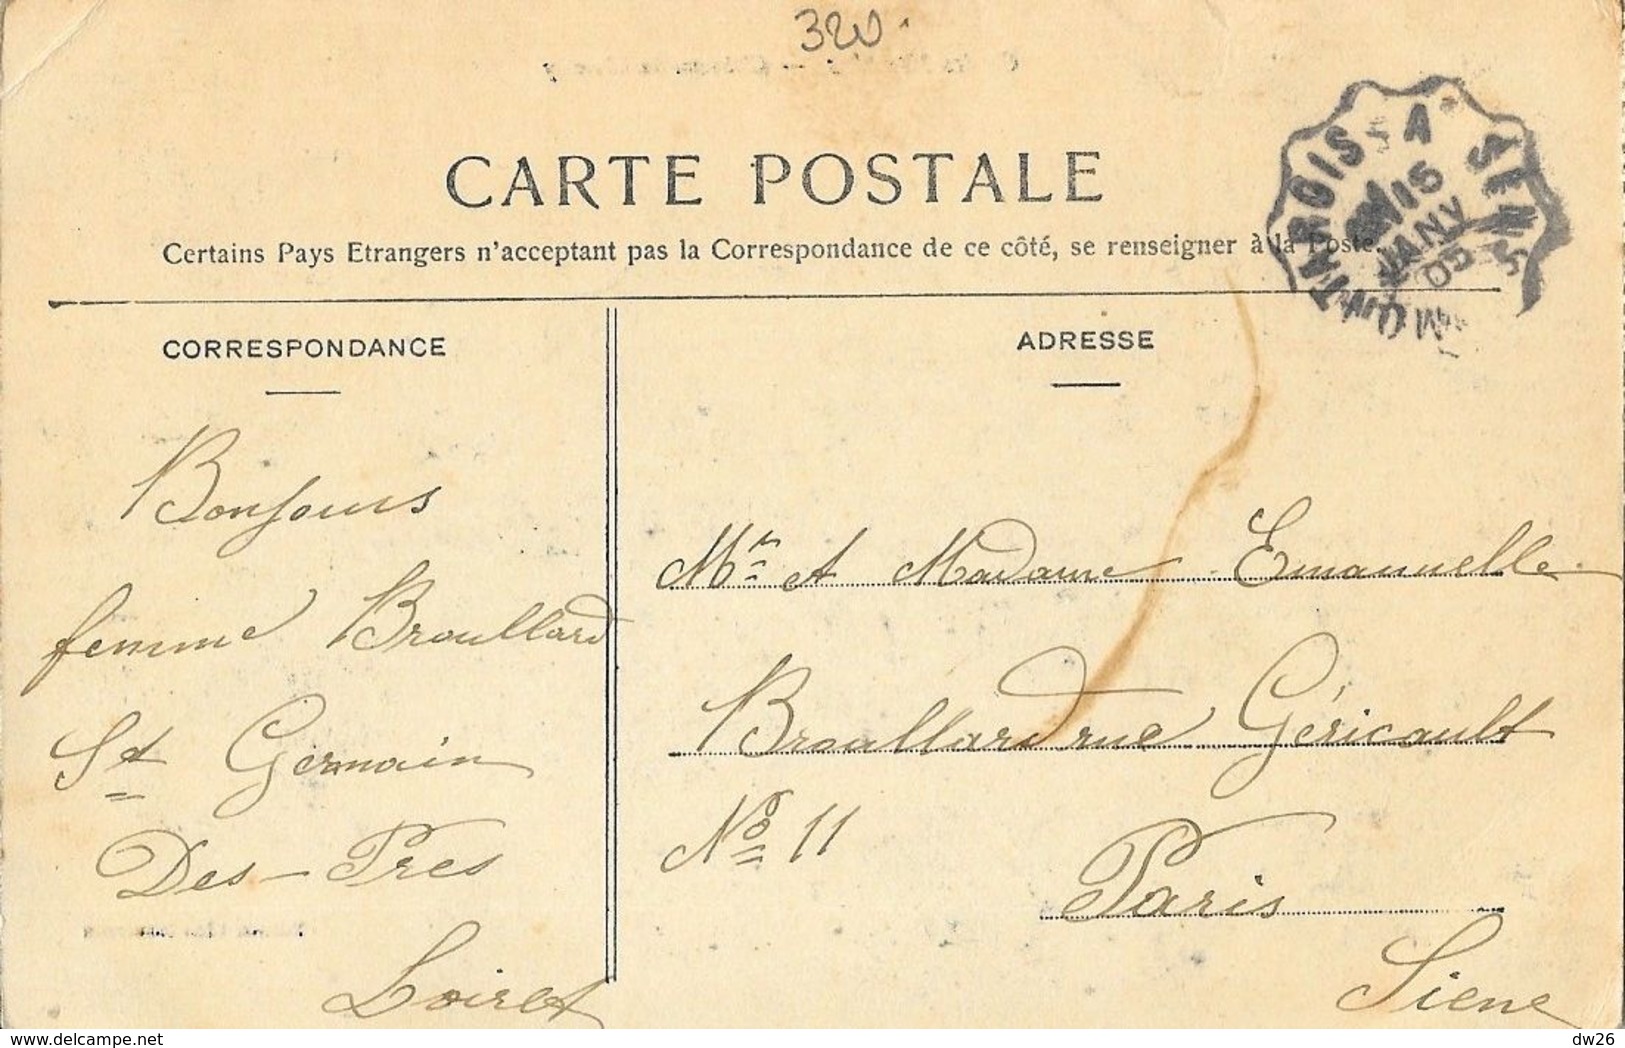 320
CARTE POSTALE
Certains Pays Etrangers n'acceptant pas la Correspondance de ce côté, se renseigner à la Poste.
MONTARGIS A SENS
16
JANV
05
CORRESPONDANCE
Bonjours
femme Broullard
St Germain
Des-Pres
Loiret
ADRESSE
Mr et Madame Emanuelle
Broullard rue Géricault
No 11
Paris
Siene
delcampe.net
dw26